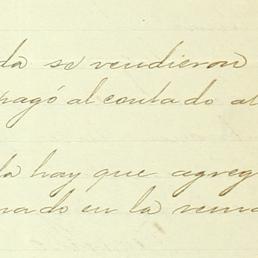 da se vendieron
pagó al contado al
da hay que agreg
nado en la venta